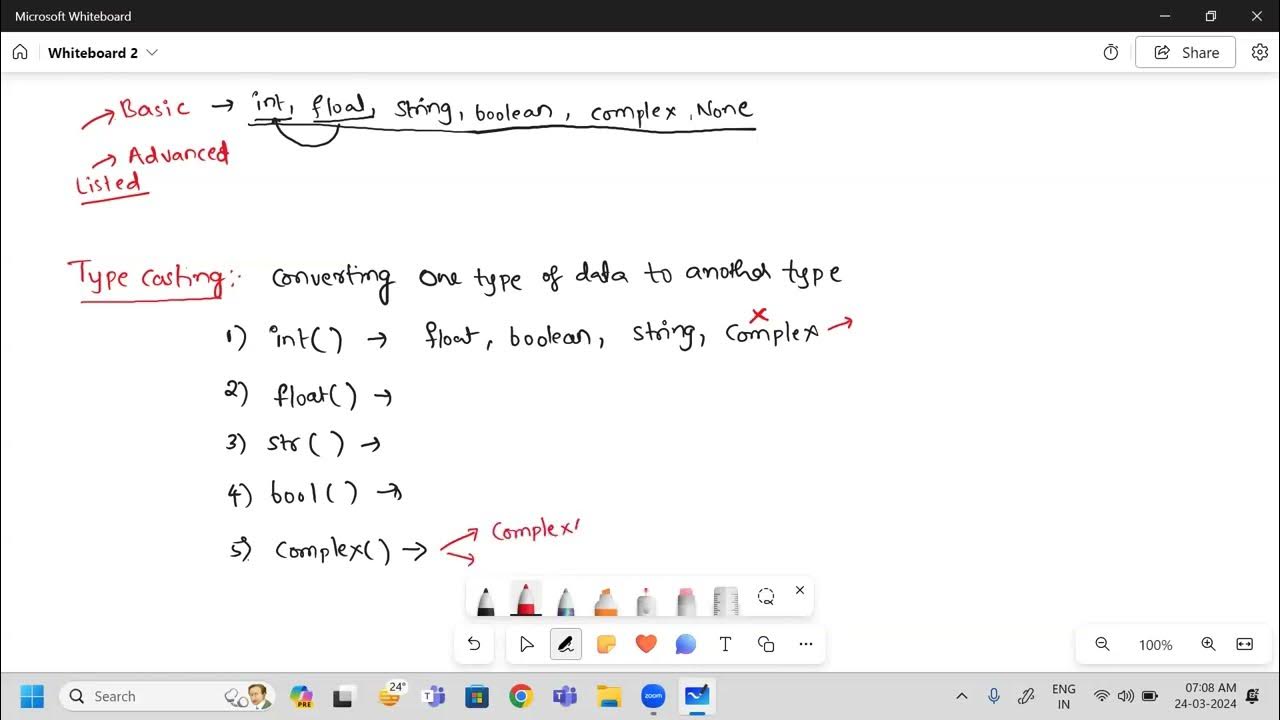 Microsoft Whiteboard
Whiteboard 2
Share
Basic → int, float, string, boolean, complex, None
→ Advanced
Listed
Type casting:- converting one type of data to another type
1) int( ) → float, boolean, string, complex →
x
2) float( ) →
3) str( ) →
4) bool( ) →
5) complex( ) → complex(
T
100%
Search
24°
PRE
zoom
ENG
IN
07:08 AM
24-03-2024